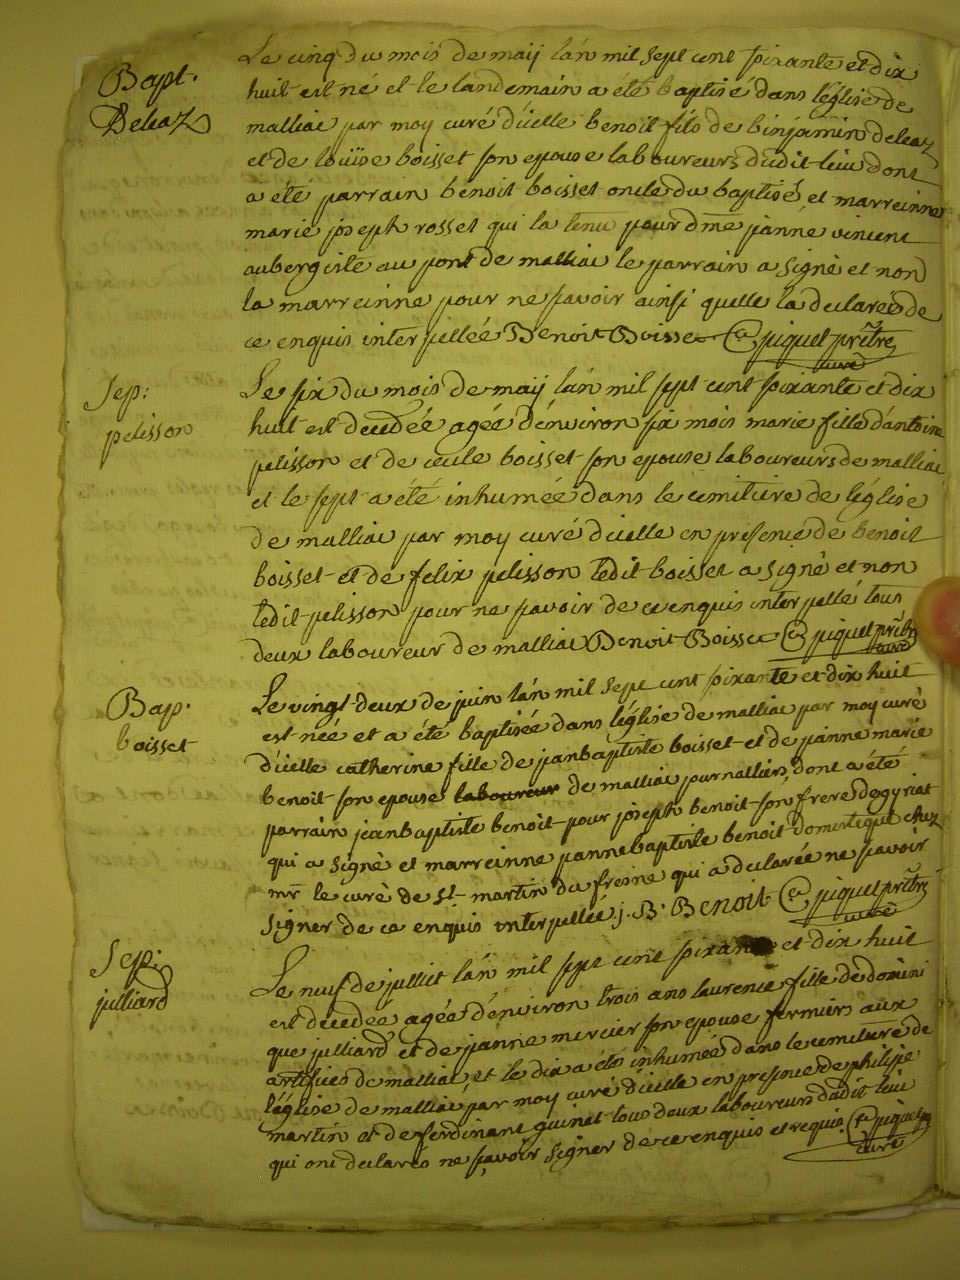 Bapt.
Deleaz
Le cinq du mois de maij lan mil sept cent soixante et dix
huit est né et le landemain a été baptisé dans léglise de
malliac par moy curé d'icelle benoit fils de binjamin deleaz
et de louïse boisset son epouse laboureurs dudit lieu dont
a été parrain benoit boisset oncle du baptisé et marreinne
marie joseph rosset qui la tenu pour dme janne vincent
aubergiste au pont de malliac le parrain a signé et non
la marreinne pour ne savoir ainsi quelle la declareé de
ce enquis interpellée Benoit Boisset piquet prêtre
curé
Sep:
pelisson
Le six du mois de maij lan mil sept cent soixante et dix
huit est decedée agée d'environ six mois marie fille d'antoine
pelisson et de cecile boisset son epouse laboureurs de malliac
et le sept a été inhumée dans le cemitiere de léglise
de malliac par moy curé d'icelle en presence de benoit
boisset et de felix pelisson ledit boisset a signé et non
ledit pelisson pour ne savoir de ce enquis interpellé tous
deux laboureur de malliac Benoit Boisset piquet prêtre
curé
Bap.
boisset
Le vingt deux de juin lan mil sept cent soixante et dix huit
est née et a été baptisée dans léglise de malliac par moy curé
d'icelle catherine fille de janbaptiste boisset et de janne marie
benoit son epouse laboureur de malliac journalliers dont a été
parrain jeanbaptiste benoit pour joseph benoit son frere degyriat
qui a signé et marreinne jannebaptiste benoit domestique chez
mr le curé de st martin du fresne qui a declarée ne savoir
signer de ce enquis interpellée j. B. Benoit piquet prêtre
curé
Sep:
julliard
Le neuf de julliet lan mil sept cent soixante et dix huit
est decedée agée d'environ trois ans laurence fille de domini
que julliard et de janne mercier son epouse fermiers aux
artifices de malliac et le dix a été inhumée dans le cemitiere de
léglise de malliac par moy curé d'icelle en presence de philipe
martin et de ferdinant guinet tous deux laboureurs dudit lieu
qui ont declarés ne savoir signer de ce enquis et requis piquet
curé